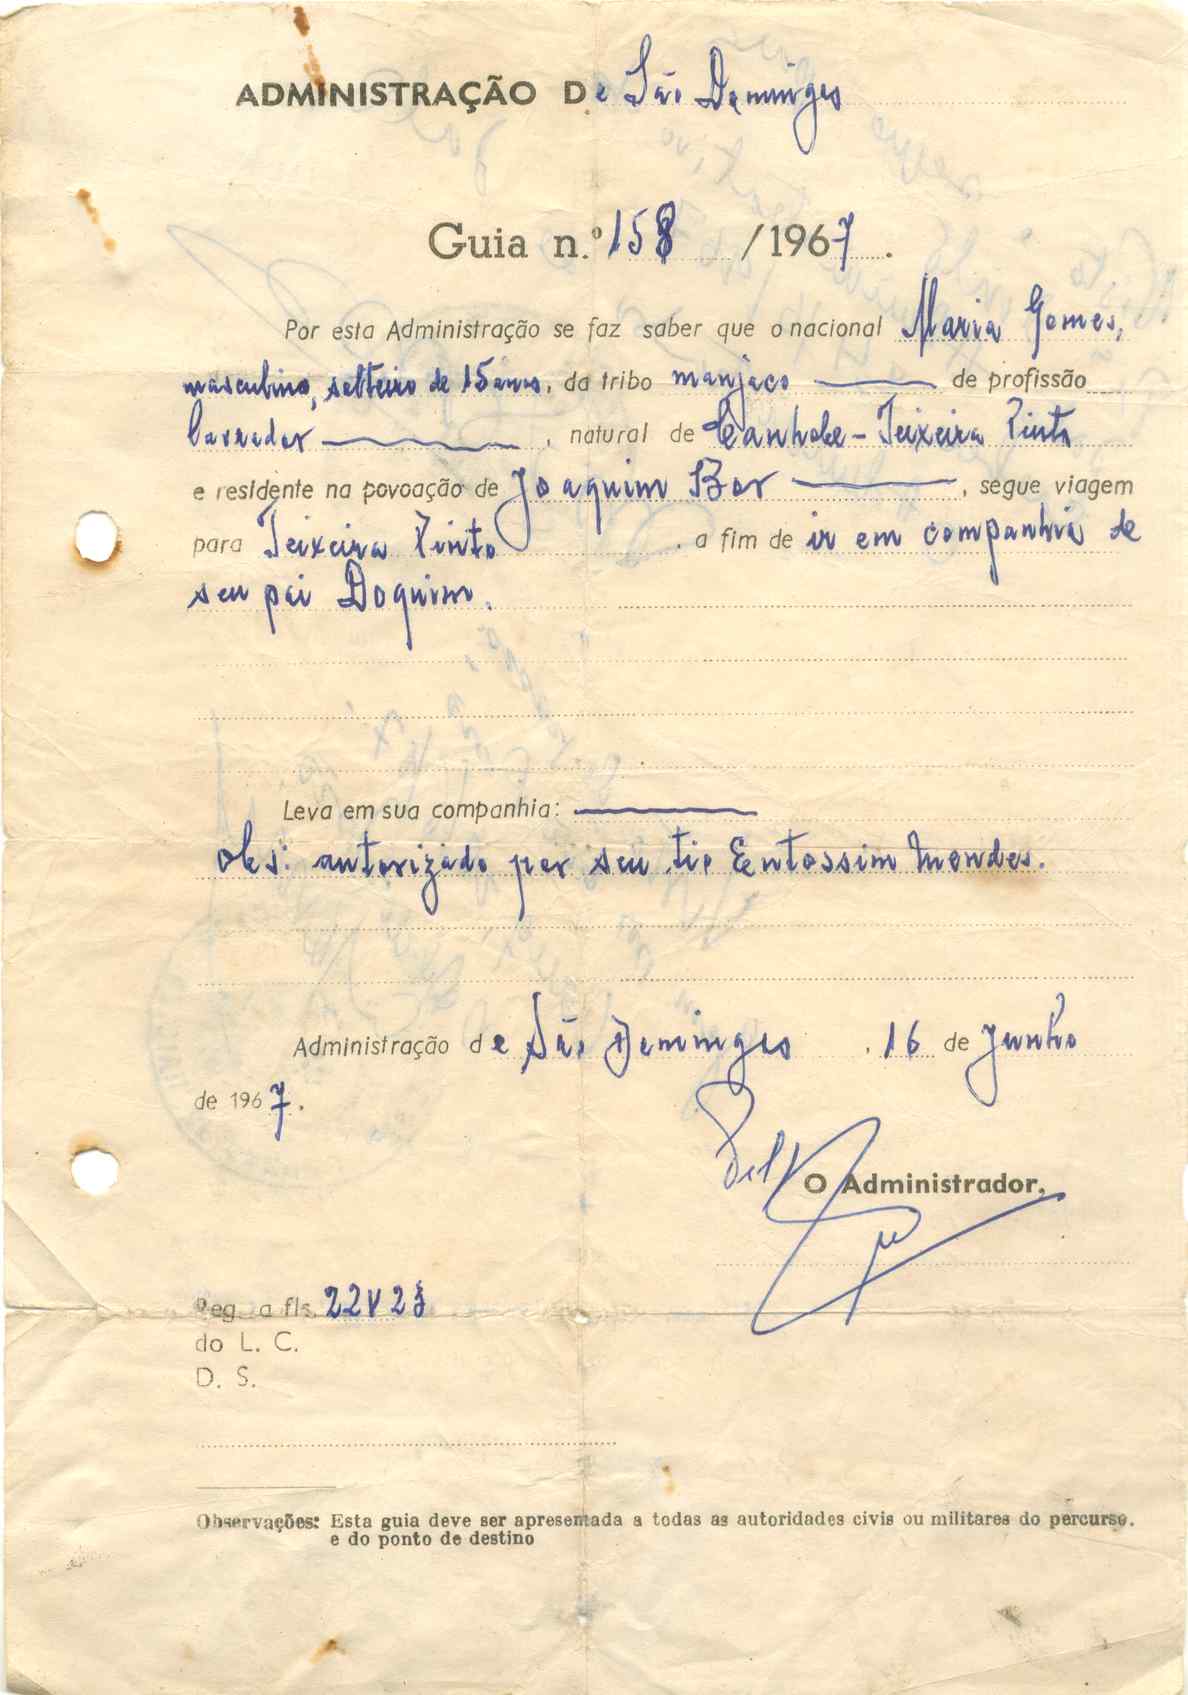 ADMINISTRAÇÃO De São Domingos
Guia n.º 158 /1967.
Por esta Administração se faz saber que o nacional Maria Gomes,
masculino, solteiro de 15 anos, da tribo manjaco de profissão
lavrador, natural de Canhobe - Teixeira Pinto
e residente na povoação de Joaquim Bor, segue viagem
para Teixeira Pinto, a fim de ir em companhia de
seu pai Doquim.
Leva em sua companhia:
obs: autorizado por seu tio Entossim Mendes.
Administração de São Domingos, 16 de Junho
de 1967.
O Administrador,
Reg. a fls. 22V 23
do L. C.
D. S.
Observações: Esta guia deve ser apresentada a todas as autoridades civis ou militares do percurso.
e do ponto de destino